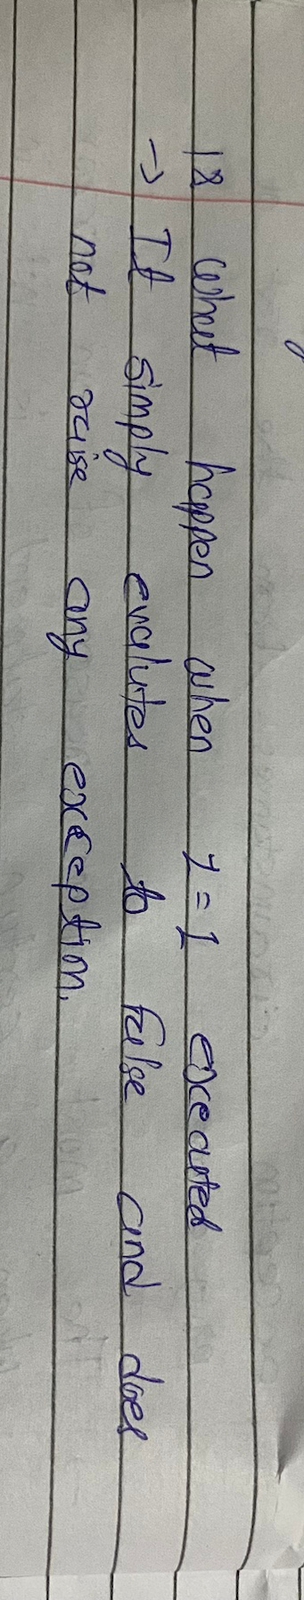 18 What happen when 1 = 1 executed
→ It simply evalutes to false and does
not raise any exception.